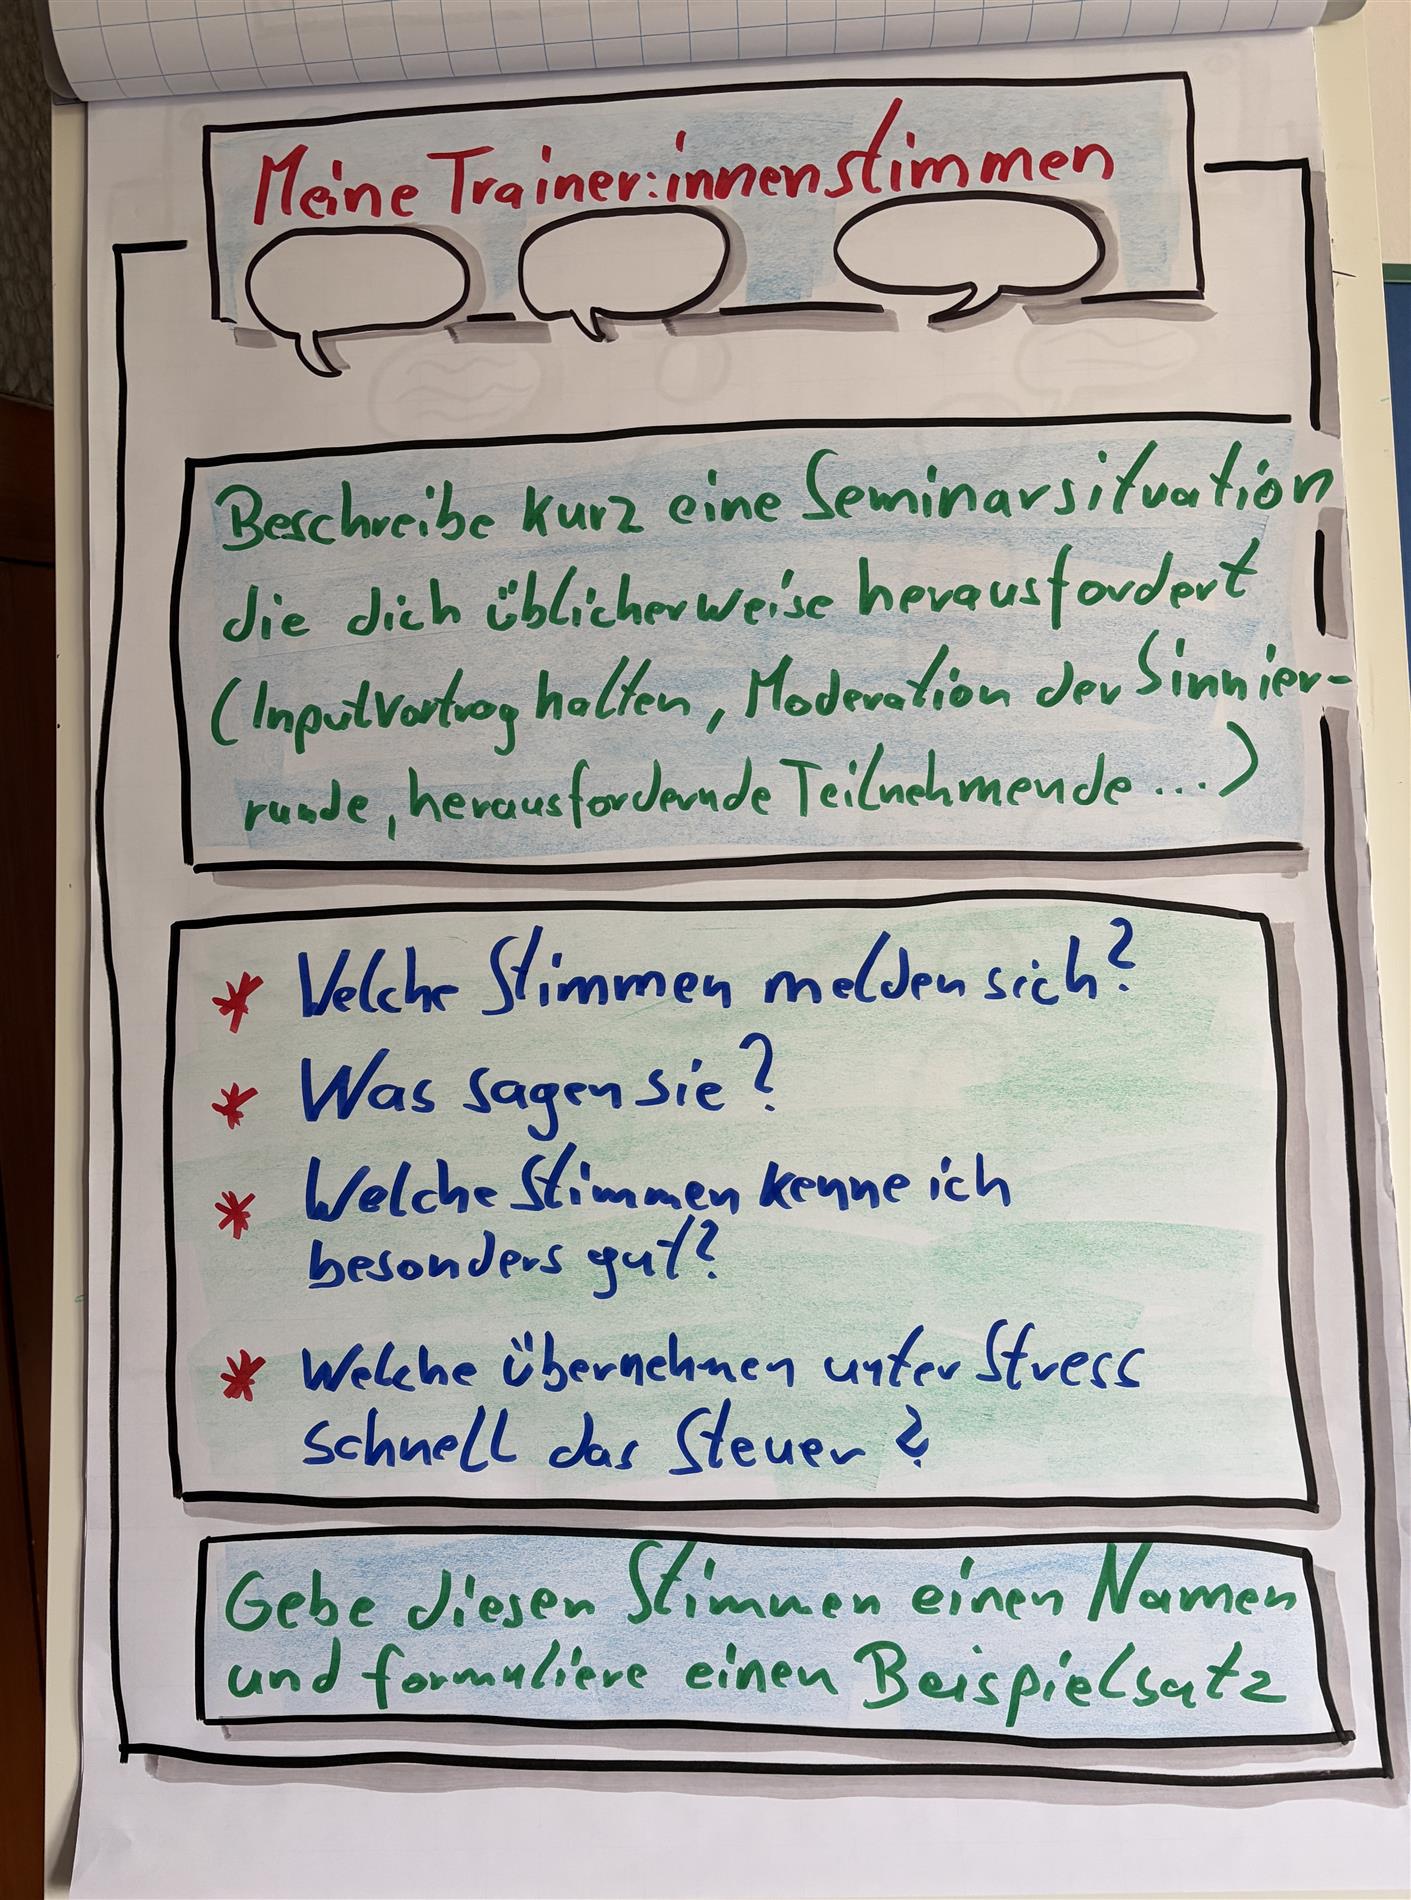 Meine Trainer:innenstimmen
Beschreibe kurz eine Seminarsituation
die dich üblicherweise herausfordert
(Inputvortrag halten, Moderation der Sinnier-
runde, herausfordernde Teilnehmende ...)
* Welche Stimmen melden sich?
* Was sagen sie?
* Welche Stimmen kenne ich
besonders gut?
* Welche übernehmen unter Stress
schnell das Steuer?
Gebe diesen Stimmen einen Namen
und formuliere einen Beispielsatz